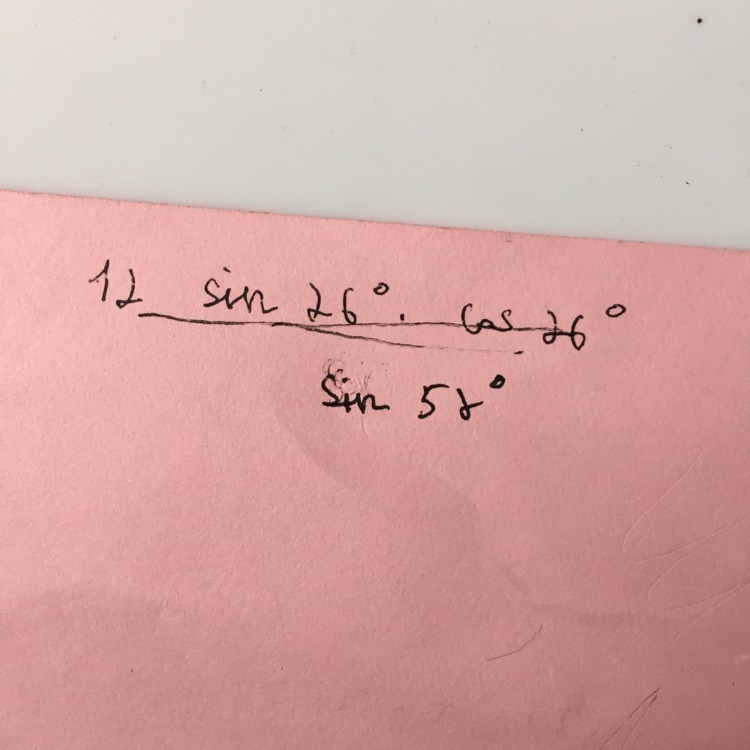 12 sin 26°. cos 26°
sin 52°